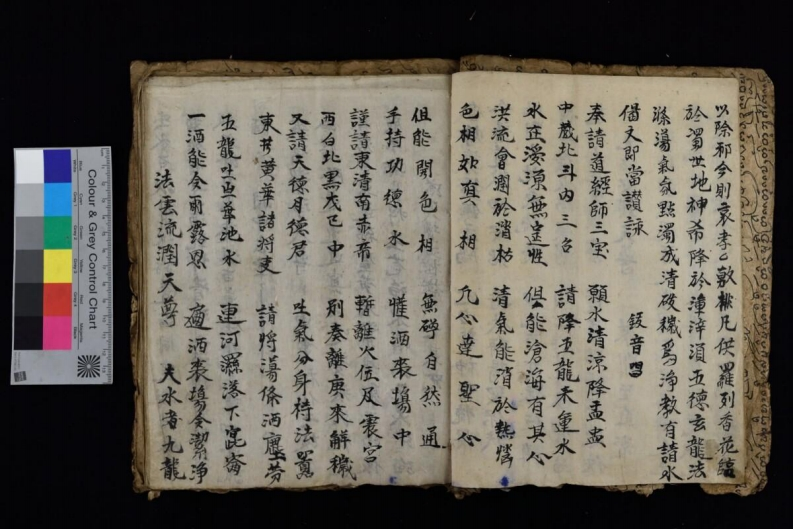 以除邪今則哀孝⺀敷權凡供羅列香花臨
於濁世地神希降於漳滓湏五德玄龍法
滌蕩氣氛點濁成清破穢為淨教有請水
偈文即當讃詠 鈸音唱
奉請道經師三宝 願水清涼降盂盅
中嚴北斗內三台 請降五龍禾運水
水在湲源無定性 但能滄海有其心
洪流會潤於消枯 清氣能消於熱惱
色相如真相 凡心達聖心
但能開色相 無碍自然通
手持功德水 惟洒裘塲中
謹請東清南赤帝 暫離火位及震宮
西白北黒戊己中 別奏離庚來解穢
又請天德月德君 吐氣分身持法噐
東井黄華諸將吏 請將蕩條洒壇芳
五龍吐出華池水 連河灑落下崑崙
一洒能令雨露恩 適洒裘塲令潔淨
法雲流潤天尊 夫水者九龍
Colour & Grey Control Chart